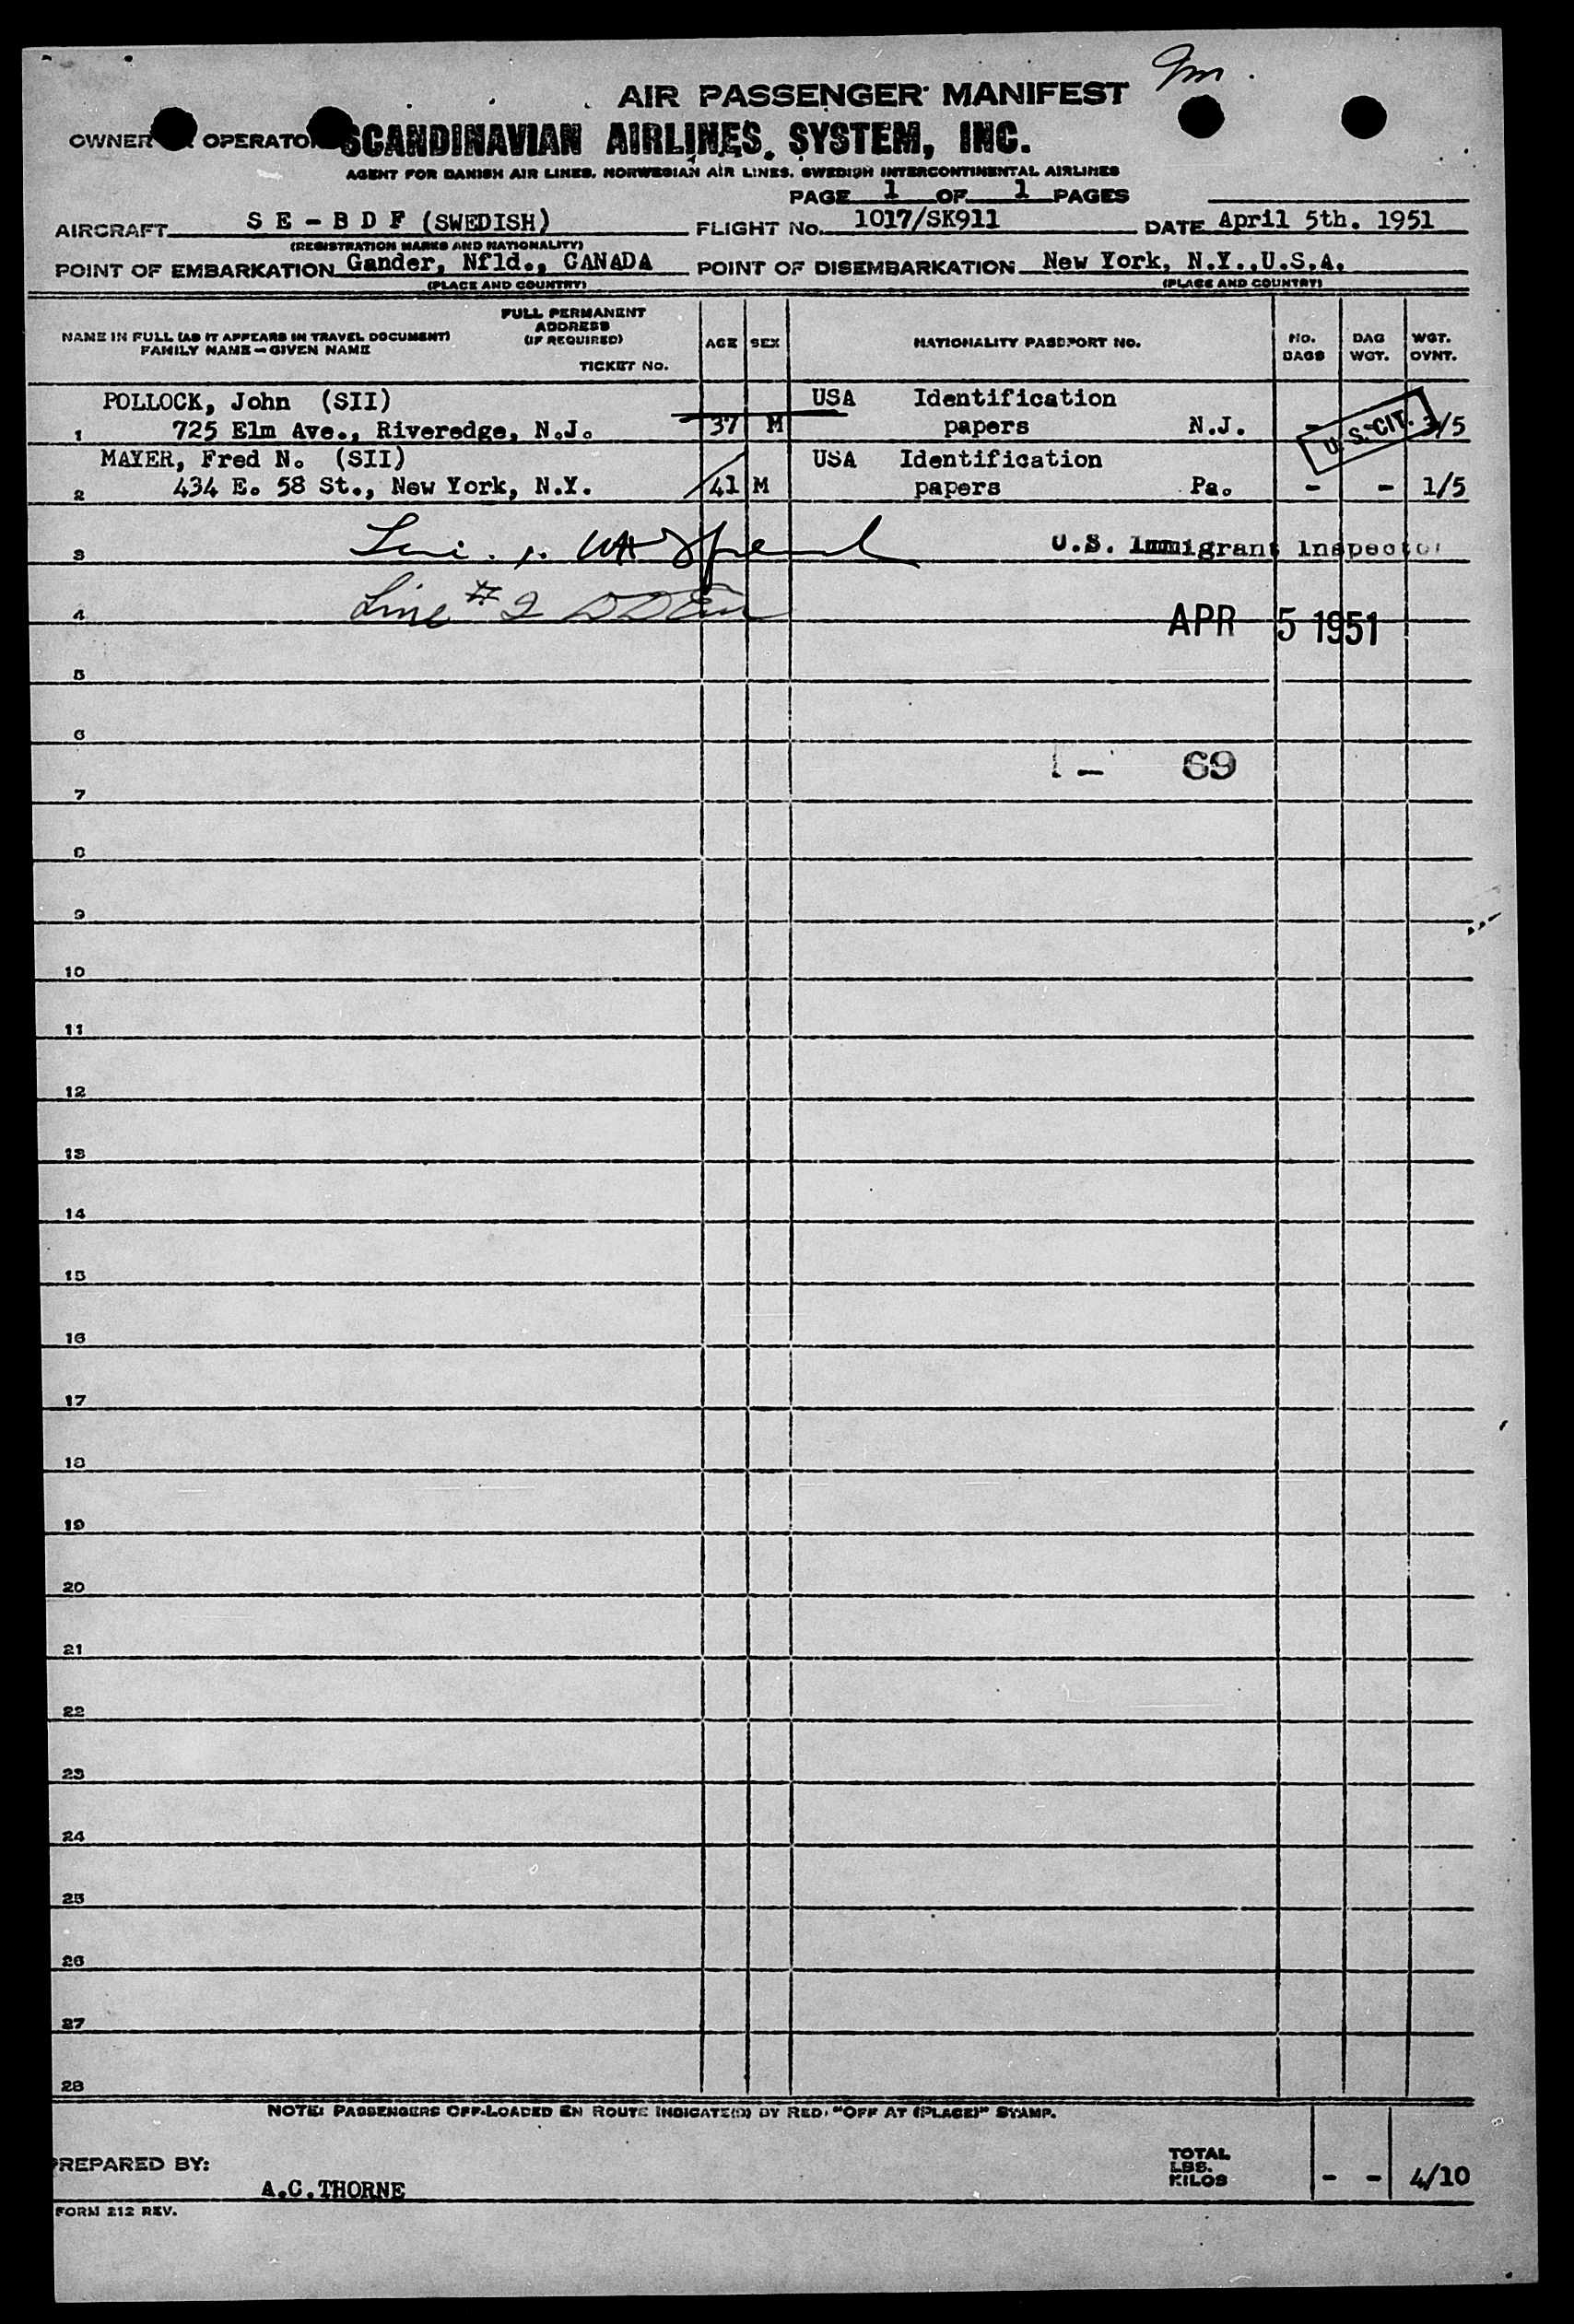 AIR PASSENGER MANIFEST
OWNER OPERATOR SCANDINAVIAN AIRLINES SYSTEM, INC.
AGENT FOR DANISH AIR LINES, NORWEGIAN AIR LINES, SWEDISH INTERCONTINENTAL AIRLINES
PAGE 1 OF 1 PAGES
AIRCRAFT S E - B D F (SWEDISH) FLIGHT No. 1017/SK911 DATE April 5th. 1951
(REGISTRATION MARKS AND NATIONALITY)
POINT OF EMBARKATION Gander, Nfld., CANADA POINT OF DISEMBARKATION New York, N.Y.,U.S.A.
(PLACE AND COUNTRY) (PLACE AND COUNTRY)
NAME IN FULL (AS IT APPEARS IN TRAVEL DOCUMENT)
FAMILY NAME — GIVEN NAME
FULL PERMANENT
ADDRESS
(IF REQUIRED)
TICKET No.
AGE SEX NATIONALITY PASSPORT NO.
NO. BAGS
BAG WGT.
WGT. OVNT.
POLLOCK, John (SII) USA Identification
1 725 Elm Ave., Riveredge, N.J. 37 M papers N.J. - U.S. CIT. 3/5
MAYER, Fred N. (SII) USA Identification
2 434 E. 58 St., New York, N.Y. 41 M papers Pa. - - 1/5
3 U.S. Immigrant Inspector
4 Line #2 APR 5 1951
5
6
69
7
8
9
10
11
12
13
14
15
16
17
18
19
20
21
22
23
24
25
26
27
28
NOTE: PASSENGERS OFF-LOADED EN ROUTE INDICATE(D) BY RED "OFF AT (PLACE)" STAMP.
PREPARED BY: A.C.THORNE
TOTAL
LBS.
KILOS - - 4/10
FORM 212 REV.